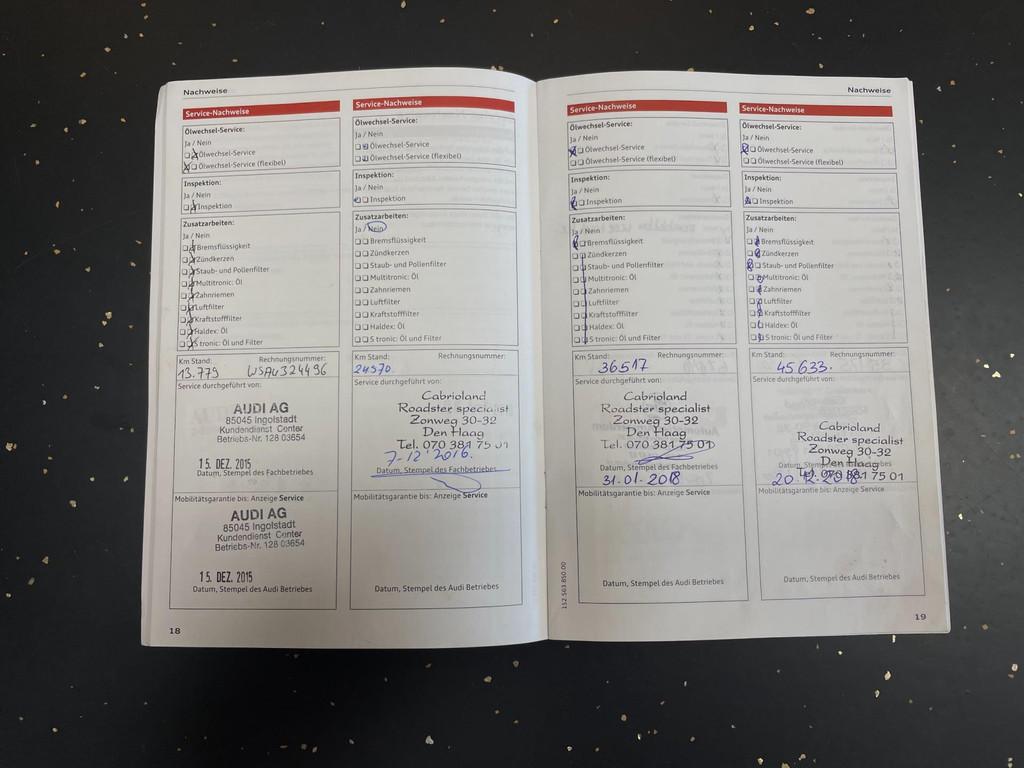 Nachweise
Service-Nachweise
Ölwechsel-Service:
Ja / Nein
Ölwechsel-Service
Ölwechsel-Service (flexibel)
Inspektion:
Ja / Nein
Inspektion
Zusatzarbeiten:
Ja / Nein
Bremsflüssigkeit
Zündkerzen
Staub- und Pollenfilter
Multitronic: Öl
Zahnriemen
Luftfilter
Kraftstofffilter
Haldex: Öl
S tronic: Öl und Filter
Km Stand: Rechnungsnummer:
13.779 WSAU324496
Service durchgeführt von:
AUDI AG
85045 Ingolstadt
Kundendienst Center
Betriebs-Nr. 128 03654
15. DEZ. 2015
Datum, Stempel des Fachbetriebes
Mobilitätsgarantie bis: Anzeige Service
AUDI AG
85045 Ingolstadt
Kundendienst Center
Betriebs-Nr. 128 03654
15. DEZ. 2015
Datum, Stempel des Audi Betriebes
18
Service-Nachweise
Ölwechsel-Service:
Ja / Nein
Ölwechsel-Service
Ölwechsel-Service (flexibel)
Inspektion:
Ja / Nein
Inspektion
Zusatzarbeiten:
Ja / Nein
Bremsflüssigkeit
Zündkerzen
Staub- und Pollenfilter
Multitronic: Öl
Zahnriemen
Luftfilter
Kraftstofffilter
Haldex: Öl
S tronic: Öl und Filter
Km Stand: Rechnungsnummer:
24970
Service durchgeführt von:
Cabrioland
Roadster specialist
Zonweg 30-32
Den Haag
Tel. 070 381 75 01
7-12-2016.
Datum, Stempel des Fachbetriebes
Mobilitätsgarantie bis: Anzeige Service
Datum, Stempel des Audi Betriebes
Nachweise
Service-Nachweise
Ölwechsel-Service:
Ja / Nein
Ölwechsel-Service
Ölwechsel-Service (flexibel)
Inspektion:
Ja / Nein
Inspektion
Zusatzarbeiten:
Ja / Nein
Bremsflüssigkeit
Zündkerzen
Staub- und Pollenfilter
Multitronic: Öl
Zahnriemen
Luftfilter
Kraftstofffilter
Haldex: Öl
S tronic: Öl und Filter
Km Stand: Rechnungsnummer:
36517
Service durchgeführt von:
Cabrioland
Roadster specialist
Zonweg 30-32
Den Haag
Tel. 070 381 75 01
Datum, Stempel des Fachbetriebes
31-01-2018
Mobilitätsgarantie bis: Anzeige Service
Datum, Stempel des Audi Betriebes
152.5G3.850.00
Service-Nachweise
Ölwechsel-Service:
Ja / Nein
Ölwechsel-Service
Ölwechsel-Service (flexibel)
Inspektion:
Ja / Nein
Inspektion
Zusatzarbeiten:
Ja / Nein
Bremsflüssigkeit
Zündkerzen
Staub- und Pollenfilter
Multitronic: Öl
Zahnriemen
Luftfilter
Kraftstofffilter
Haldex: Öl
S tronic: Öl und Filter
Km Stand: Rechnungsnummer:
45633.
Service durchgeführt von:
Cabrioland
Roadster specialist
Zonweg 30-32
Den Haag
Datum, Stempel des Fachbetriebes
Tel. 070 381 75 01
20-12-2018
Mobilitätsgarantie bis: Anzeige Service
Datum, Stempel des Audi Betriebes
19